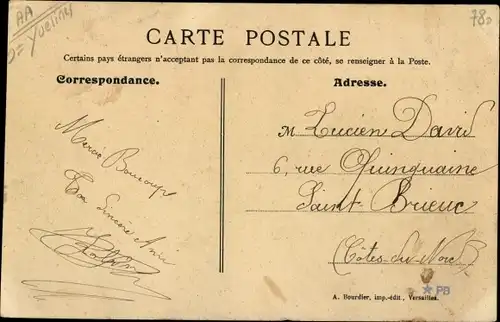 AA
Yvelines
78
CARTE POSTALE
Certains pays étrangers n'acceptant pas la correspondance de ce côté, se renseigner à la Poste.
Correspondance.
Merci Boucoup
Ton Sincère Ami
Adresse.
M Lucien David
6, rue Quinquaine
Saint Brieuc
(Côtes-du-Nord)
PB
A. Bourdier, imp.-édit, Versailles.